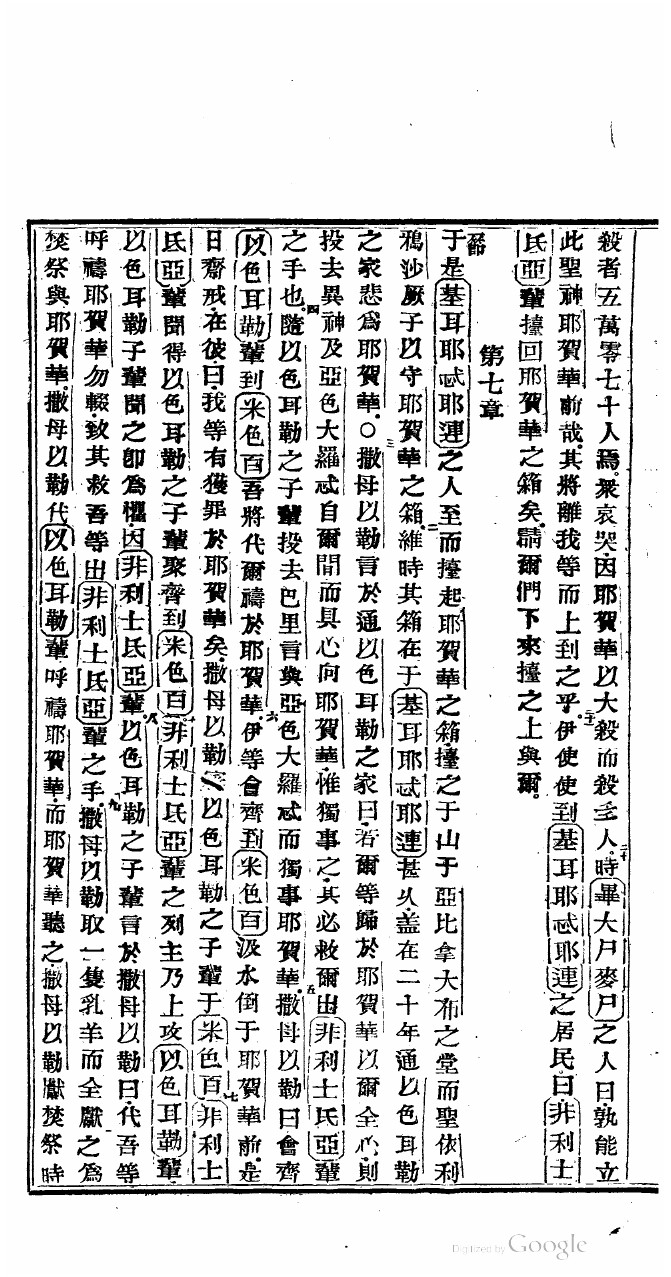 殺者五萬零七十人焉。衆哀哭、因耶賀華以大殺而殺多人。時二十畢大尸麥尸之人曰、孰能立
此聖神耶賀華前哉。其將離我等而上到之乎。二十一伊使使到基耳耶忒耶連之居民曰、非利士
氏亞輩擡回耶賀華之箱矣。請爾們下來擡之上與爾。
第七章
一節于是基耳耶忒耶連之人至而擡起耶賀華之箱、擡之于山于亞比拿大布之堂而聖依利
鴉沙厥子以守耶賀華之箱。二維時其箱在于基耳耶忒耶連甚久、盖在二十年通以色耳勒
之家悲爲耶賀華。〇三撒母以勒言於通以色耳勒之家曰、若爾等歸於耶賀華以爾全心、則
投去異神及亞色大羅忒自爾間而具心向耶賀華、惟獨事之、其必救爾出非利士氏亞輩
之手也。四隨以色耳勒之子輩投去巴里言與亞色大羅忒而獨事耶賀華。五撒母以勒曰、會齊
以色耳勒輩到米色百、吾將代爾禱於耶賀華。六伊等會齊到米色百、汲水倒于耶賀華前、是
日齋戒、在彼曰、我等有獲罪於耶賀華矣。撒母以勒以色耳勒之子輩于米色百。七非利士
氏亞輩聞得以色耳勒之子輩聚齊到米色百、非利士氏亞輩之列主乃上攻以色耳勒輩、
以色耳勒子輩聞之卽爲懼、因非利士氏亞輩。八以色耳勒之子輩言於撒母以勒曰、代吾等
呼禱耶賀華勿輟、致其救吾等出非利士氏亞輩之手。九撒母以勒取一隻乳羊而全獻之爲
焚祭與耶賀華、撒母以勒代以色耳勒輩呼禱耶賀華、而耶賀華聽之。撒母以勒獻焚祭時
Digitized by Google